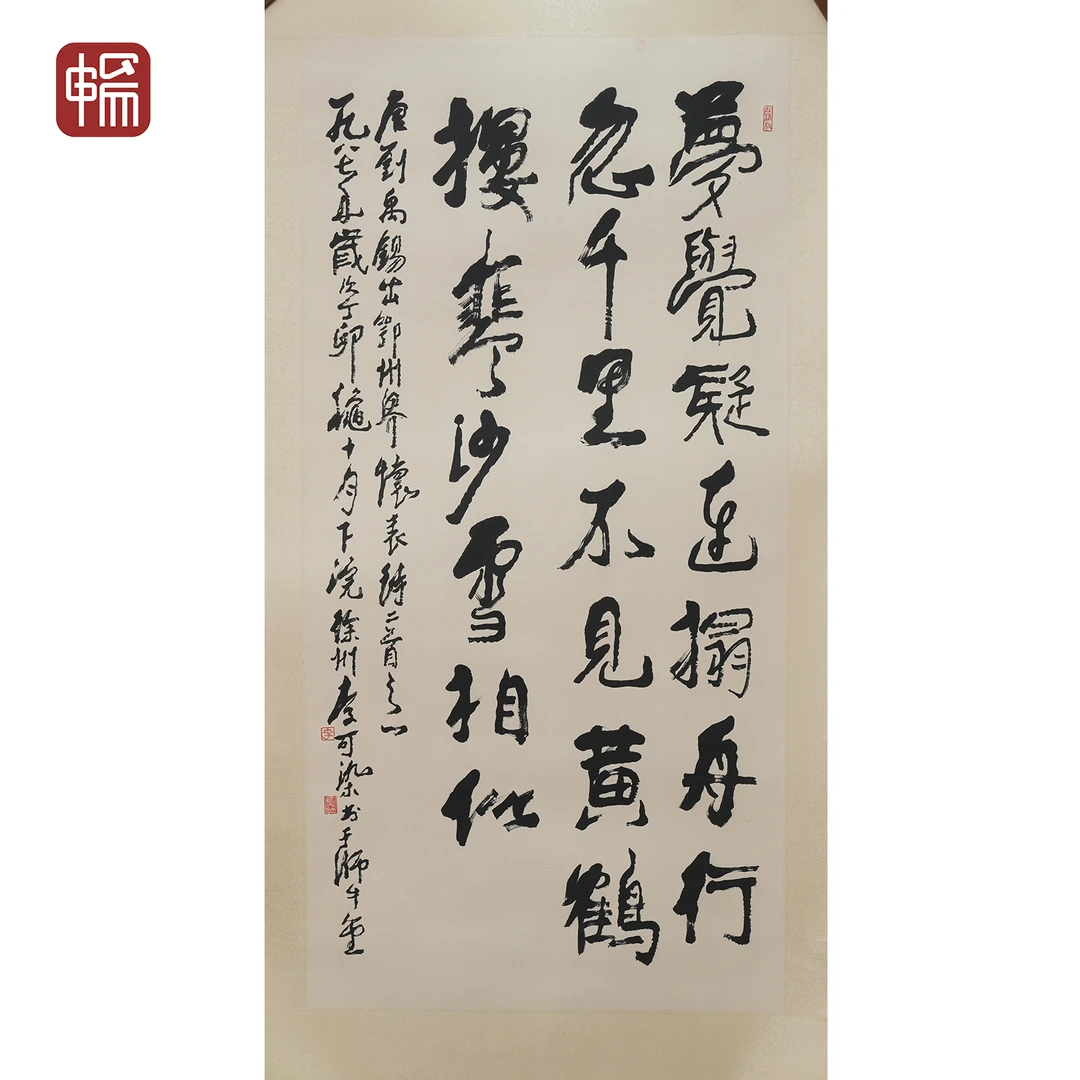 暢
夢覺疑連榻舟行
忽千里不見黃鶴
樓寒沙雪相似
唐劉禹錫出鄂州界懷表詩二首之一
一九八七年歲次丁卯龝十月下浣徐州李可染書于師牛堂
李